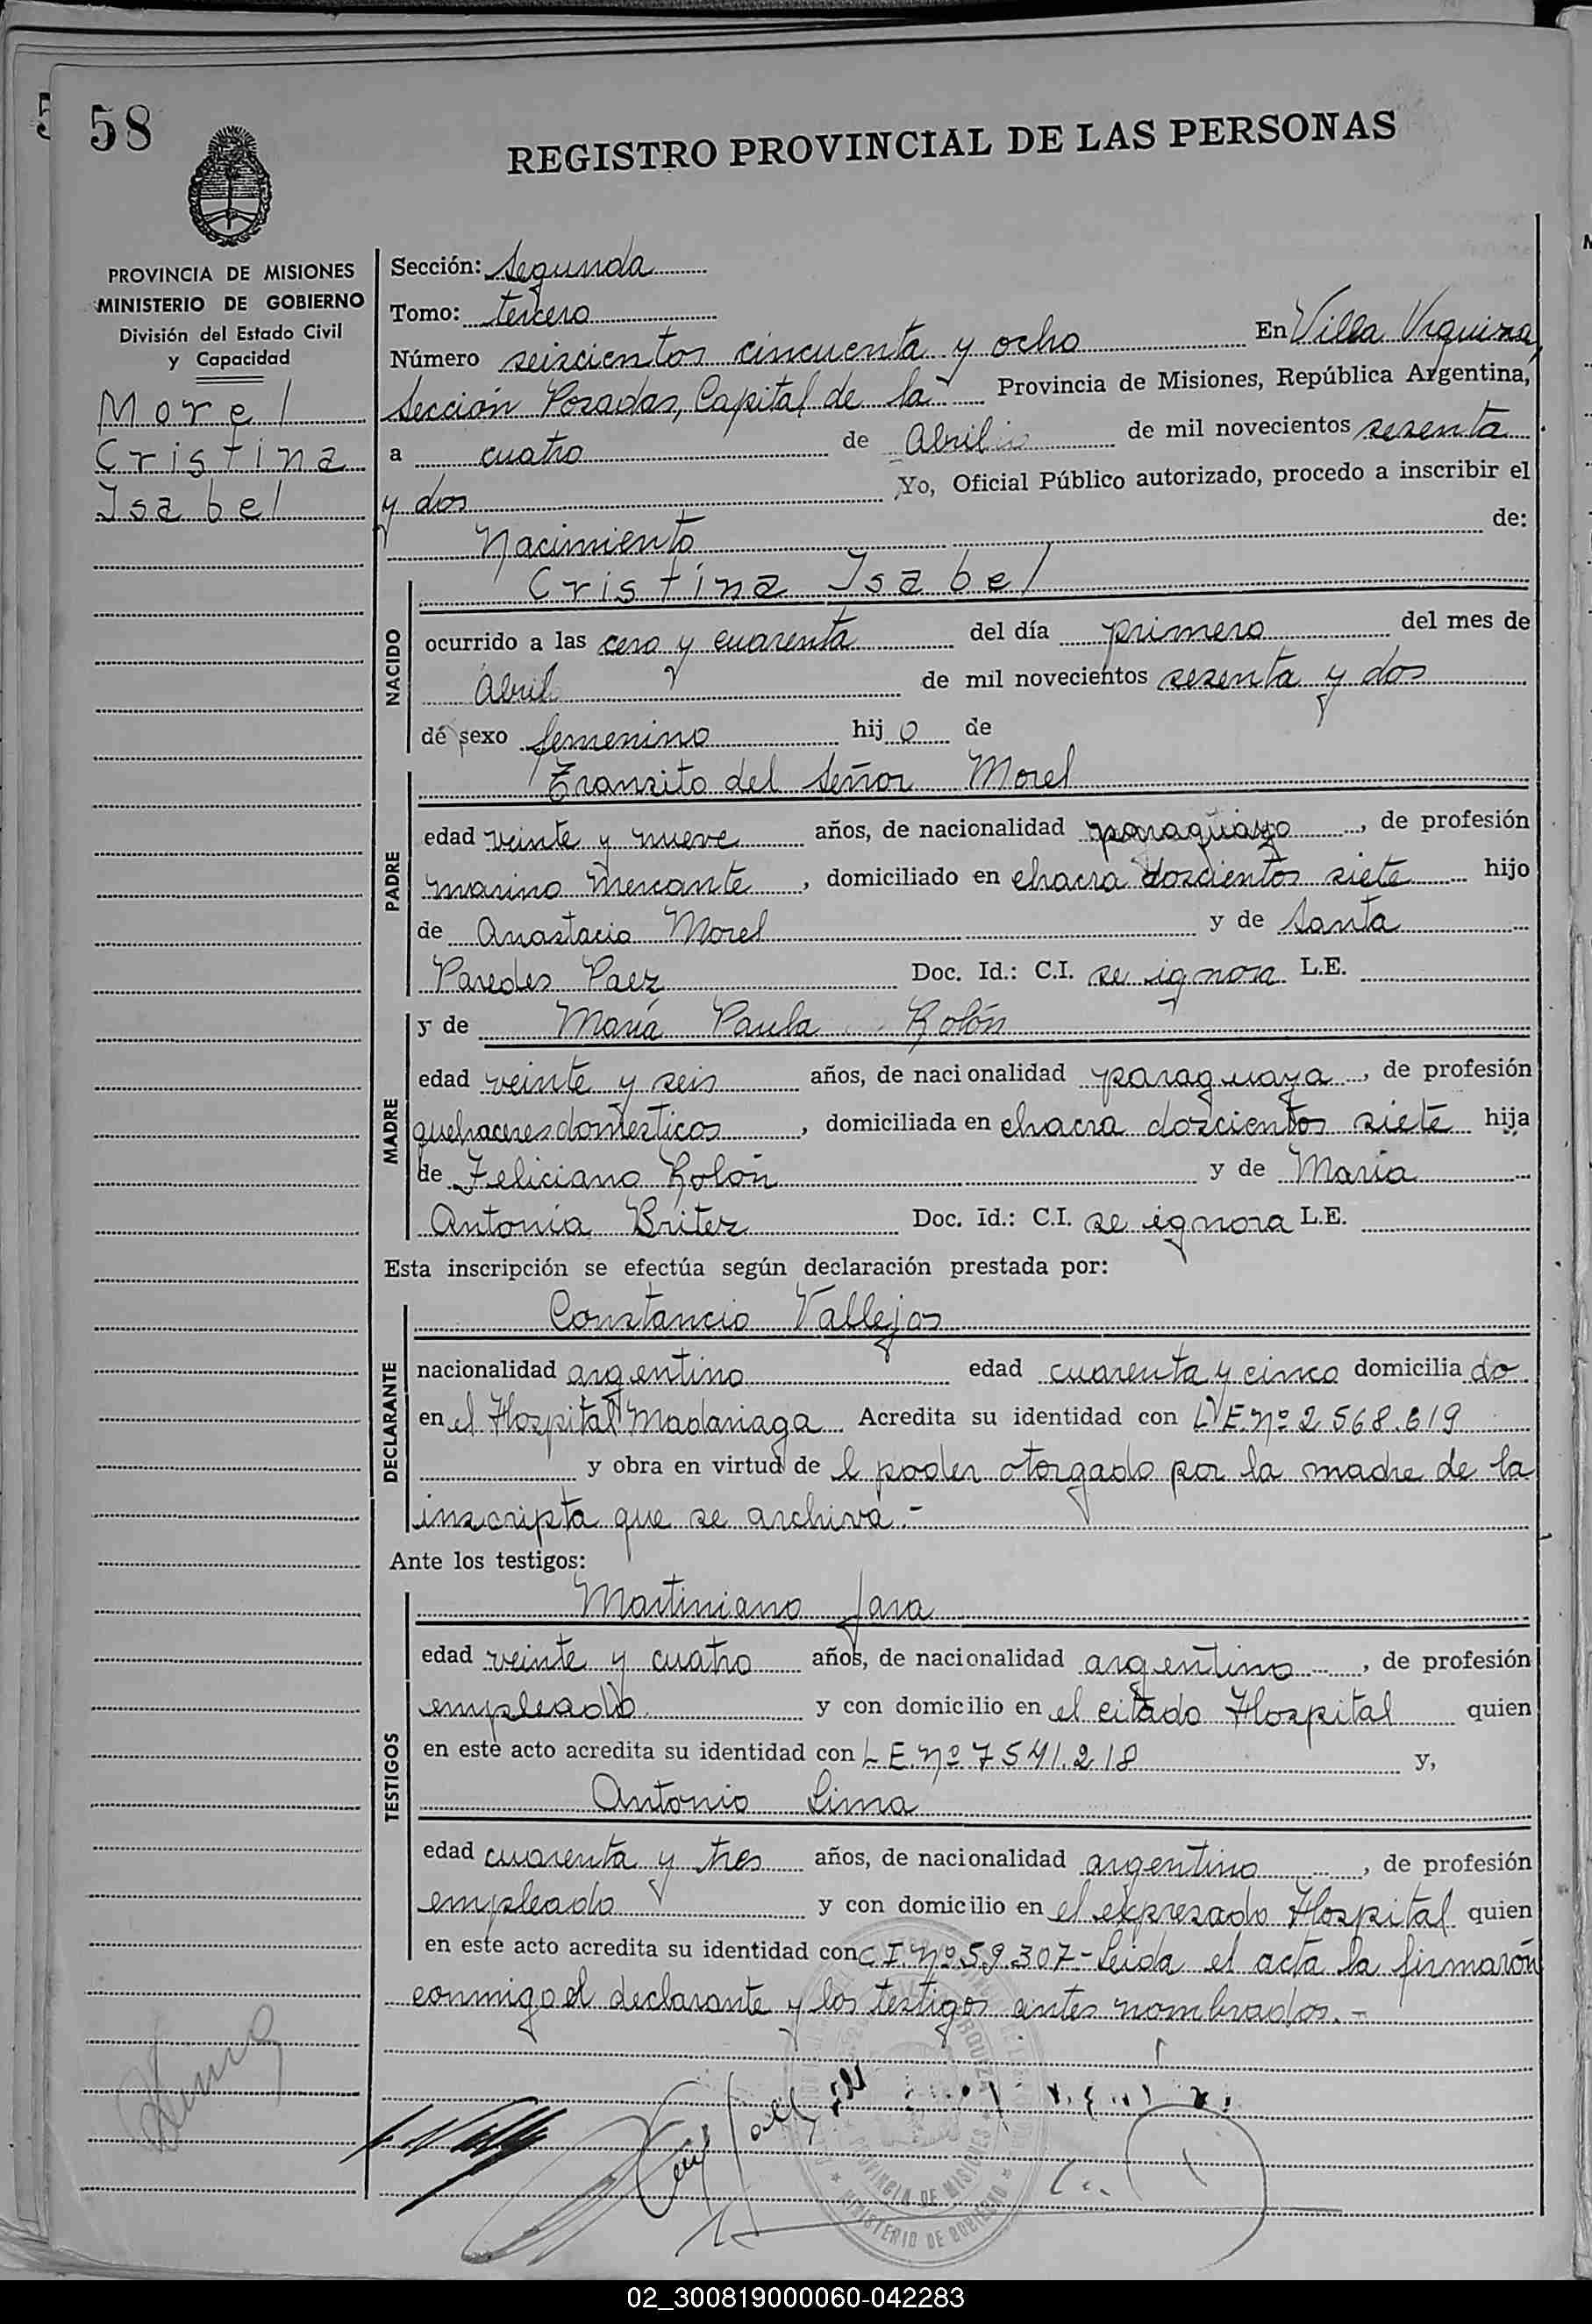 58
REGISTRO PROVINCIAL DE LAS PERSONAS
PROVINCIA DE MISIONES
MINISTERIO DE GOBIERNO
División del Estado Civil
y Capacidad
Morel
Cristina
Isabel
Sección: Segunda
Tomo: tercero
Número seiscientos cincuenta y ocho En Villa Urquiza,
Sección Posadas, Capital de la Provincia de Misiones, República Argentina,
a cuatro de Abril de mil novecientos sesenta
y dos Yo, Oficial Público autorizado, procedo a inscribir el
Nacimiento de:
NACIDO
Cristina Isabel
ocurrido a las cero y cuarenta del día primero del mes de
Abril de mil novecientos sesenta y dos
de sexo femenino hijo de
PADRE
Transito del Señor Morel
edad veinte y nueve años, de nacionalidad paraguayo, de profesión
marino mercante, domiciliado en chacra doscientos siete hijo
de Anastacio Morel y de Santa
Paredes Paez Doc. Id.: C.I. se ignora L.E.
MADRE
y de María Paula Rolón
edad veinte y seis años, de nacionalidad paraguaya, de profesión
quehaceres domésticos, domiciliada en chacra doscientos siete hija
de Feliciano Rolón y de María
Antonia Britez Doc. Id.: C.I. se ignora L.E.
Esta inscripción se efectúa según declaración prestada por:
DECLARANTE
Constancio Vallejos
nacionalidad argentino edad cuarenta y cinco domiciliado
en el Hospital Madariaga Acredita su identidad con L.E. Nº 2.568.619
y obra en virtud del poder otorgado por la madre de la
inscripta que se archiva.-
Ante los testigos:
TESTIGOS
Martiniano Jara
edad veinte y cuatro años, de nacionalidad argentino, de profesión
empleado y con domicilio en el citado Hospital quien
en este acto acredita su identidad con L.E. Nº 7.541.218 y,
Antonio Lima
edad cuarenta y tres años, de nacionalidad argentino, de profesión
empleado y con domicilio en el expresado Hospital quien
en este acto acredita su identidad con C.I. Nº 59.307- Leida el acta la firmarón
conmigo el declarante y los testigos antes nombrados.-
PROVINCIA DE MISIONES
MINISTERIO DE GOBIERNO
02_300819000060-042283